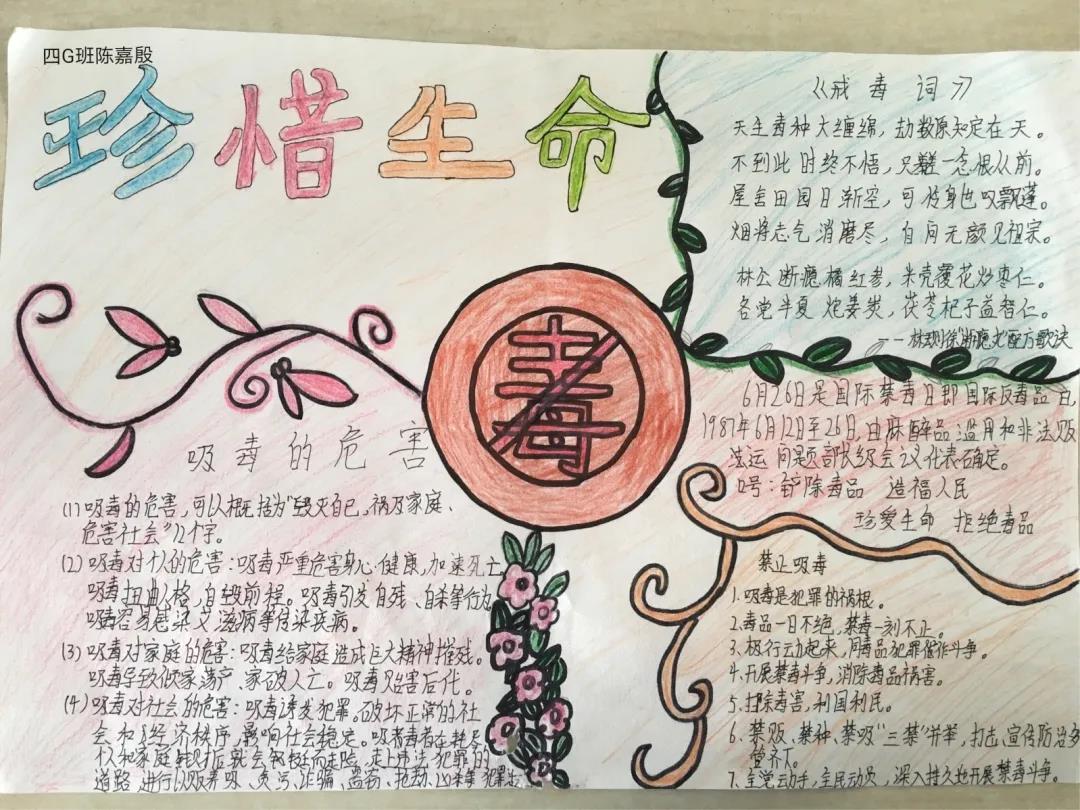 四G班陈嘉殷
珍惜生命
《戒毒词》
天生毒种大缠绵，劫数原知定在天。
不到此时终不悟，只差一念恨从前。
屋舍田园日渐空，可怜身也叹飘蓬。
烟将志气消磨尽，自问无颜见祖宗。
林公断瘾橘红参，米壳覆花炒枣仁。
各党半夏炮姜炭，茯苓杞子益智仁。
——林则徐"断瘾丸"配方歌诀
毒
6月26日是国际禁毒日即国际反毒品日，
1987年6月12日至26日，由麻醉品滥用和非法贩
法运问题部长级会议代表确定。
口号：铲除毒品 造福人民
珍爱生命 拒绝毒品
吸毒的危害
(1)吸毒的危害，可以概括为"毁灭自己，祸及家庭、
危害社会"12个字。
(2)吸毒对个人的危害：吸毒严重危害身心健康，加速死亡，
吸毒扭曲人格，自毁前程。吸毒引发自残、自杀等行为，
吸毒容易感染艾滋病等传染疾病。
(3)吸毒对家庭的危害：吸毒给家庭造成巨大精神摧残。
吸毒导致倾家荡产、家破人亡。吸毒贻害后代。
(4)吸毒对社会的危害：吸毒诱发犯罪。破坏正常的社
会和经济秩序，影响社会稳定。吸毒者在耗尽
个人和家庭钱财后就会铤而走险，走上违法犯罪的
道路，进行以贩养吸、贪污、诈骗、盗窃、抢劫、凶杀等犯罪
禁止吸毒
1.吸毒是犯罪的祸根。
2.毒品一日不绝，禁毒一刻不止。
3.积行动起来，同毒品犯罪做作斗争。
4.开展禁毒斗争，消除毒品祸害。
5.扫除毒害，利国利民。
6.禁贩、禁种、禁吸"三禁"并举，打击、宣传防治多
管齐下。
7.全党动手，全民动员，深入持久地开展禁毒斗争。